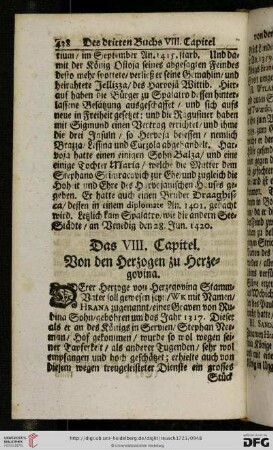 428 Des dritten Buchs VIII. Capitel
rium / im September An. 1415. starb. Und da-
mit der König Ostoja seines abgesagten Feindes
desto mehr spottete / verließ er seine Gemahlin / und
heirahtete Jellizza / des Harvojä Wittib. Hier-
auf haben die Bürger zu Spalatro dessen hinter-
lassene Besatzung ausgeschafft / und sich aufs
neue in Freiheit gesetzt: und die Raguseer haben
mit Sigmund einen Vertrag errichtet / und ihme
die drei Insuln / so Hervoja besessen / nemlich
Brazza, Lessina und Curzola abgehandelt. Har-
voja hatte einen einigen Sohn Balza / und eine
einige Tochter Maria / welche die Mutter dem
Stephano zur Ehe und zugleich die
Hoheit und Ehre des Harvojanischen Hauses gege-
geben. Er hatte auch einen Bruder
dessen in einem diplomate An. 1401. gedacht
wird. Letzlich kam Spalatro, wie die andern See-
Städte / an Venedig den 28. Jun. 1420.
Das VIII. Capitel.
Von den Herzogen zu Herze-
govina.
DEr Herzoge von Herzegovina Stamm-
Vater soll gewesen seyn / Wk mit Namen /
Hrana zugenannt / eines Graven von Ru-
dina Sohn / gebohren um das Jahr 1317. Dieser
als er an des Königs in Servien / Stephan Nee-
man / Hof gekommen / wurde so wol wegen sei-
ner Tapferkeit / als anderer Tugenden / sehr wol
empfangen und hoch geschätzt; erhielte auch von
diesem wegen treugeleisteter Dienste ein grosses
Stück
UNIVERSITÄTS-
BIBLIOTHEK
HEIDELBERG
http://digi.ub.uni-heidelberg.de/diglit/
Universitätsbibliothek Heidelberg
gefördert durch die
DFG